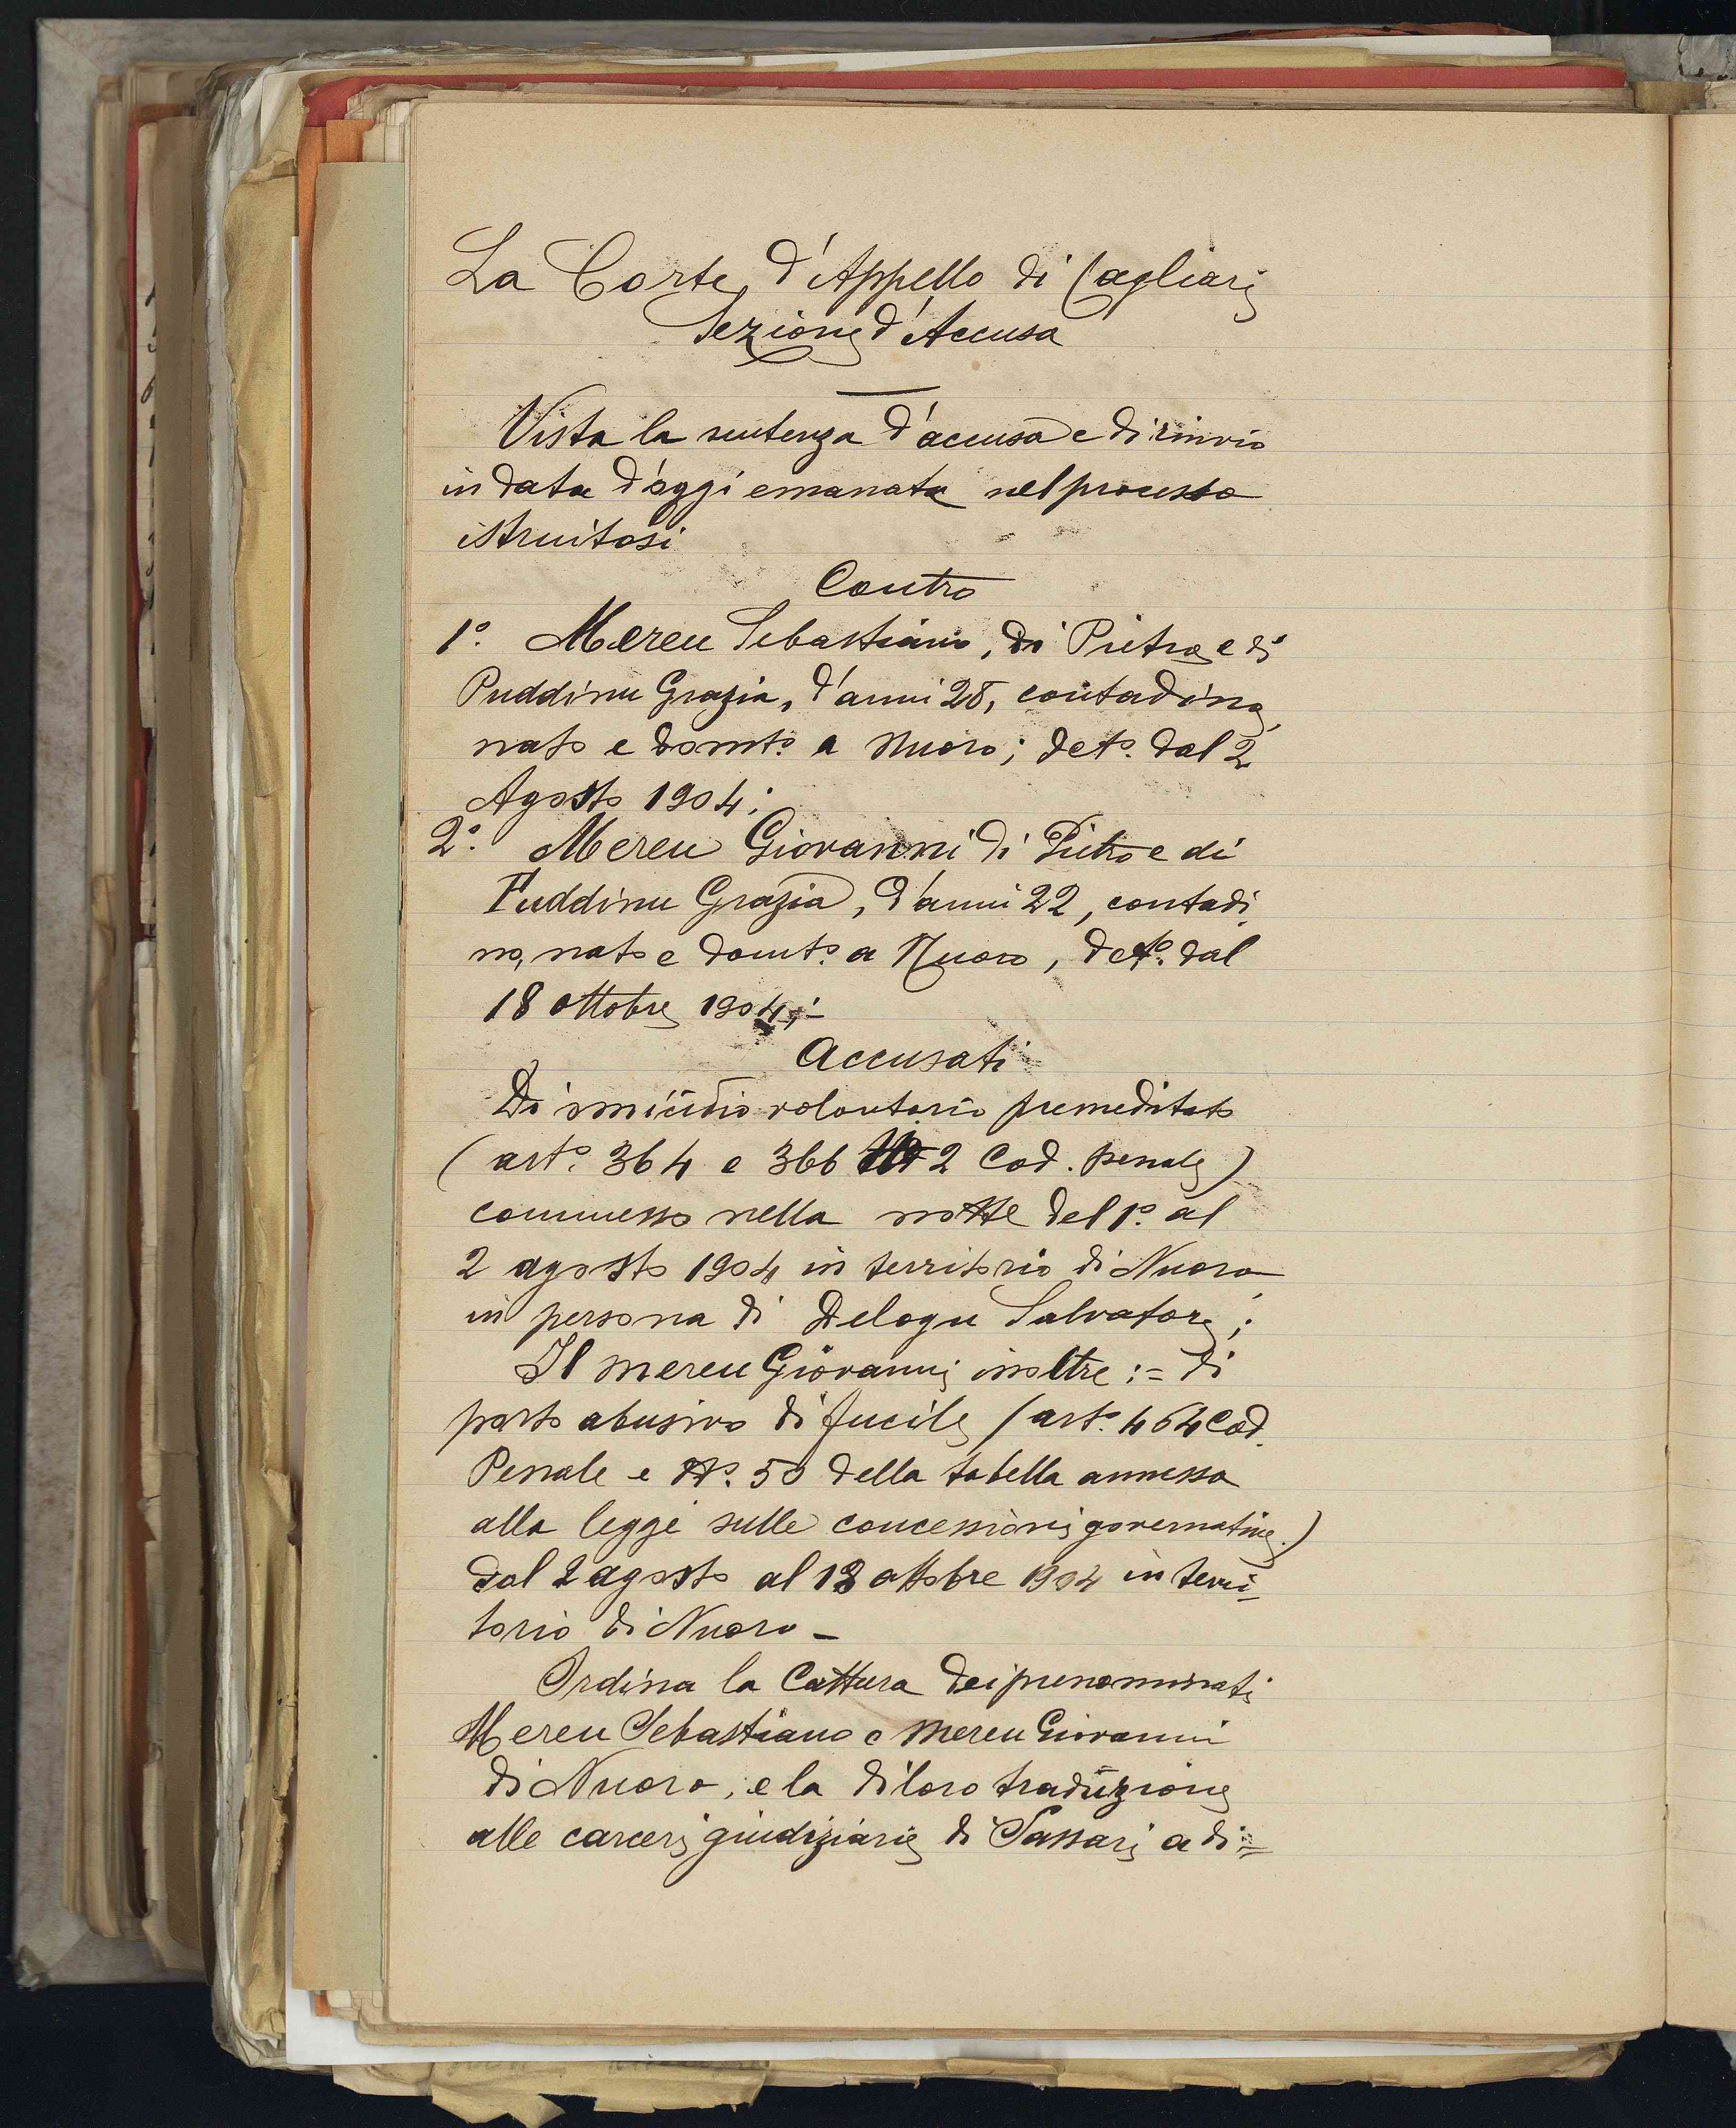 La Corte d'Appello di Cagliari
Sezione d'Accusa
Vista la sentenza d'accusa e di rinvio
in data d'oggi emanata nel processo
istruitosi
Contro
1º. Mereu Sebastiano, di Pietro e di
Puddinu Grazia, d'anni 28, contadino,
nato e domtº. a Nuoro; detº. dal 2
Agosto 1904;
2º. Mereu Giovanni di Pietro e di
Puddinu Grazia, d'anni 22, contadi
no, nato e domtº. a Nuoro, detº. dal
18 ottobre 1904;-
Accusati
Di omicidio volontario premeditato
(artº. 364 e 366 2 Cod. penale)
commesso nella notte del 1º. al
2 agosto 1904 in territorio di Nuoro
in persona di Delogu Salvatore;
Il Mereu Giovanni inoltre := di
porto abusivo di fucile (artº. 464 Cod.
Penale e Nº. 50 della tabella annessa
alla legge sulle concessioni governative.)
dal 2 agosto al 18 ottobre 1904 in terri=
torio di Nuoro -
Ordina la Cattura dei prenominati
Mereu Sebastiano e Mereu Giovanni
di Nuoro, e la di loro traduzione
alle carceri giudiziarie di Sassari a di=